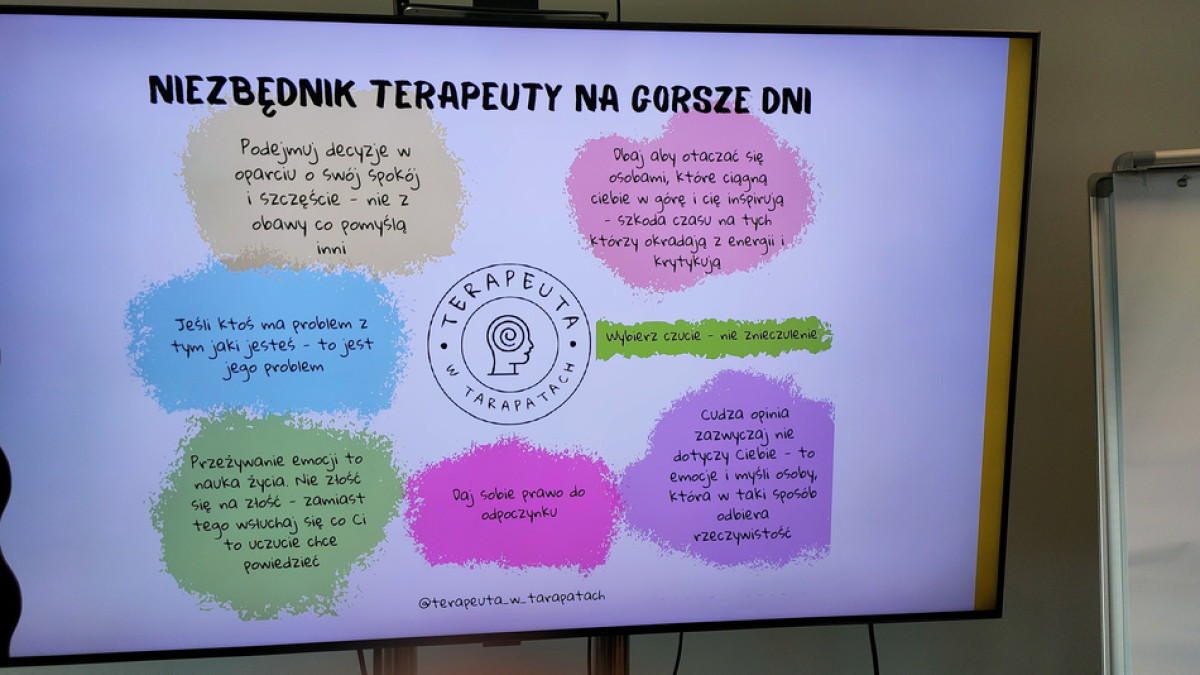 NIEZBĘDNIK TERAPEUTY NA GORSZE DNI
Podejmuj decyzje w
oparciu o swój spokój
i szczęście - nie z
obawy co pomyślą
inni
Dbaj aby otaczać się
osobami, które ciągną
ciebie w górę i cię inspirują
- szkoda czasu na tych
którzy okradają z energii i
krytykują
Jeśli ktoś ma problem z
tym jaki jesteś - to jest
jego problem
TERAPEUTA
W TARAPATACH
Wybierz czucie - nie znieczulenie
Przeżywanie emocji to
nauka życia. Nie złość
się na złość - zamiast
tego wsłuchaj się co Ci
to uczucie chce
powiedzieć
Daj sobie prawo do
odpoczynku
Cudza opinia
zazwyczaj nie
dotyczy Ciebie - to
emocje i myśli osoby,
która w taki sposób
odbiera
rzeczywistość
@terapeuta_w_tarapatach